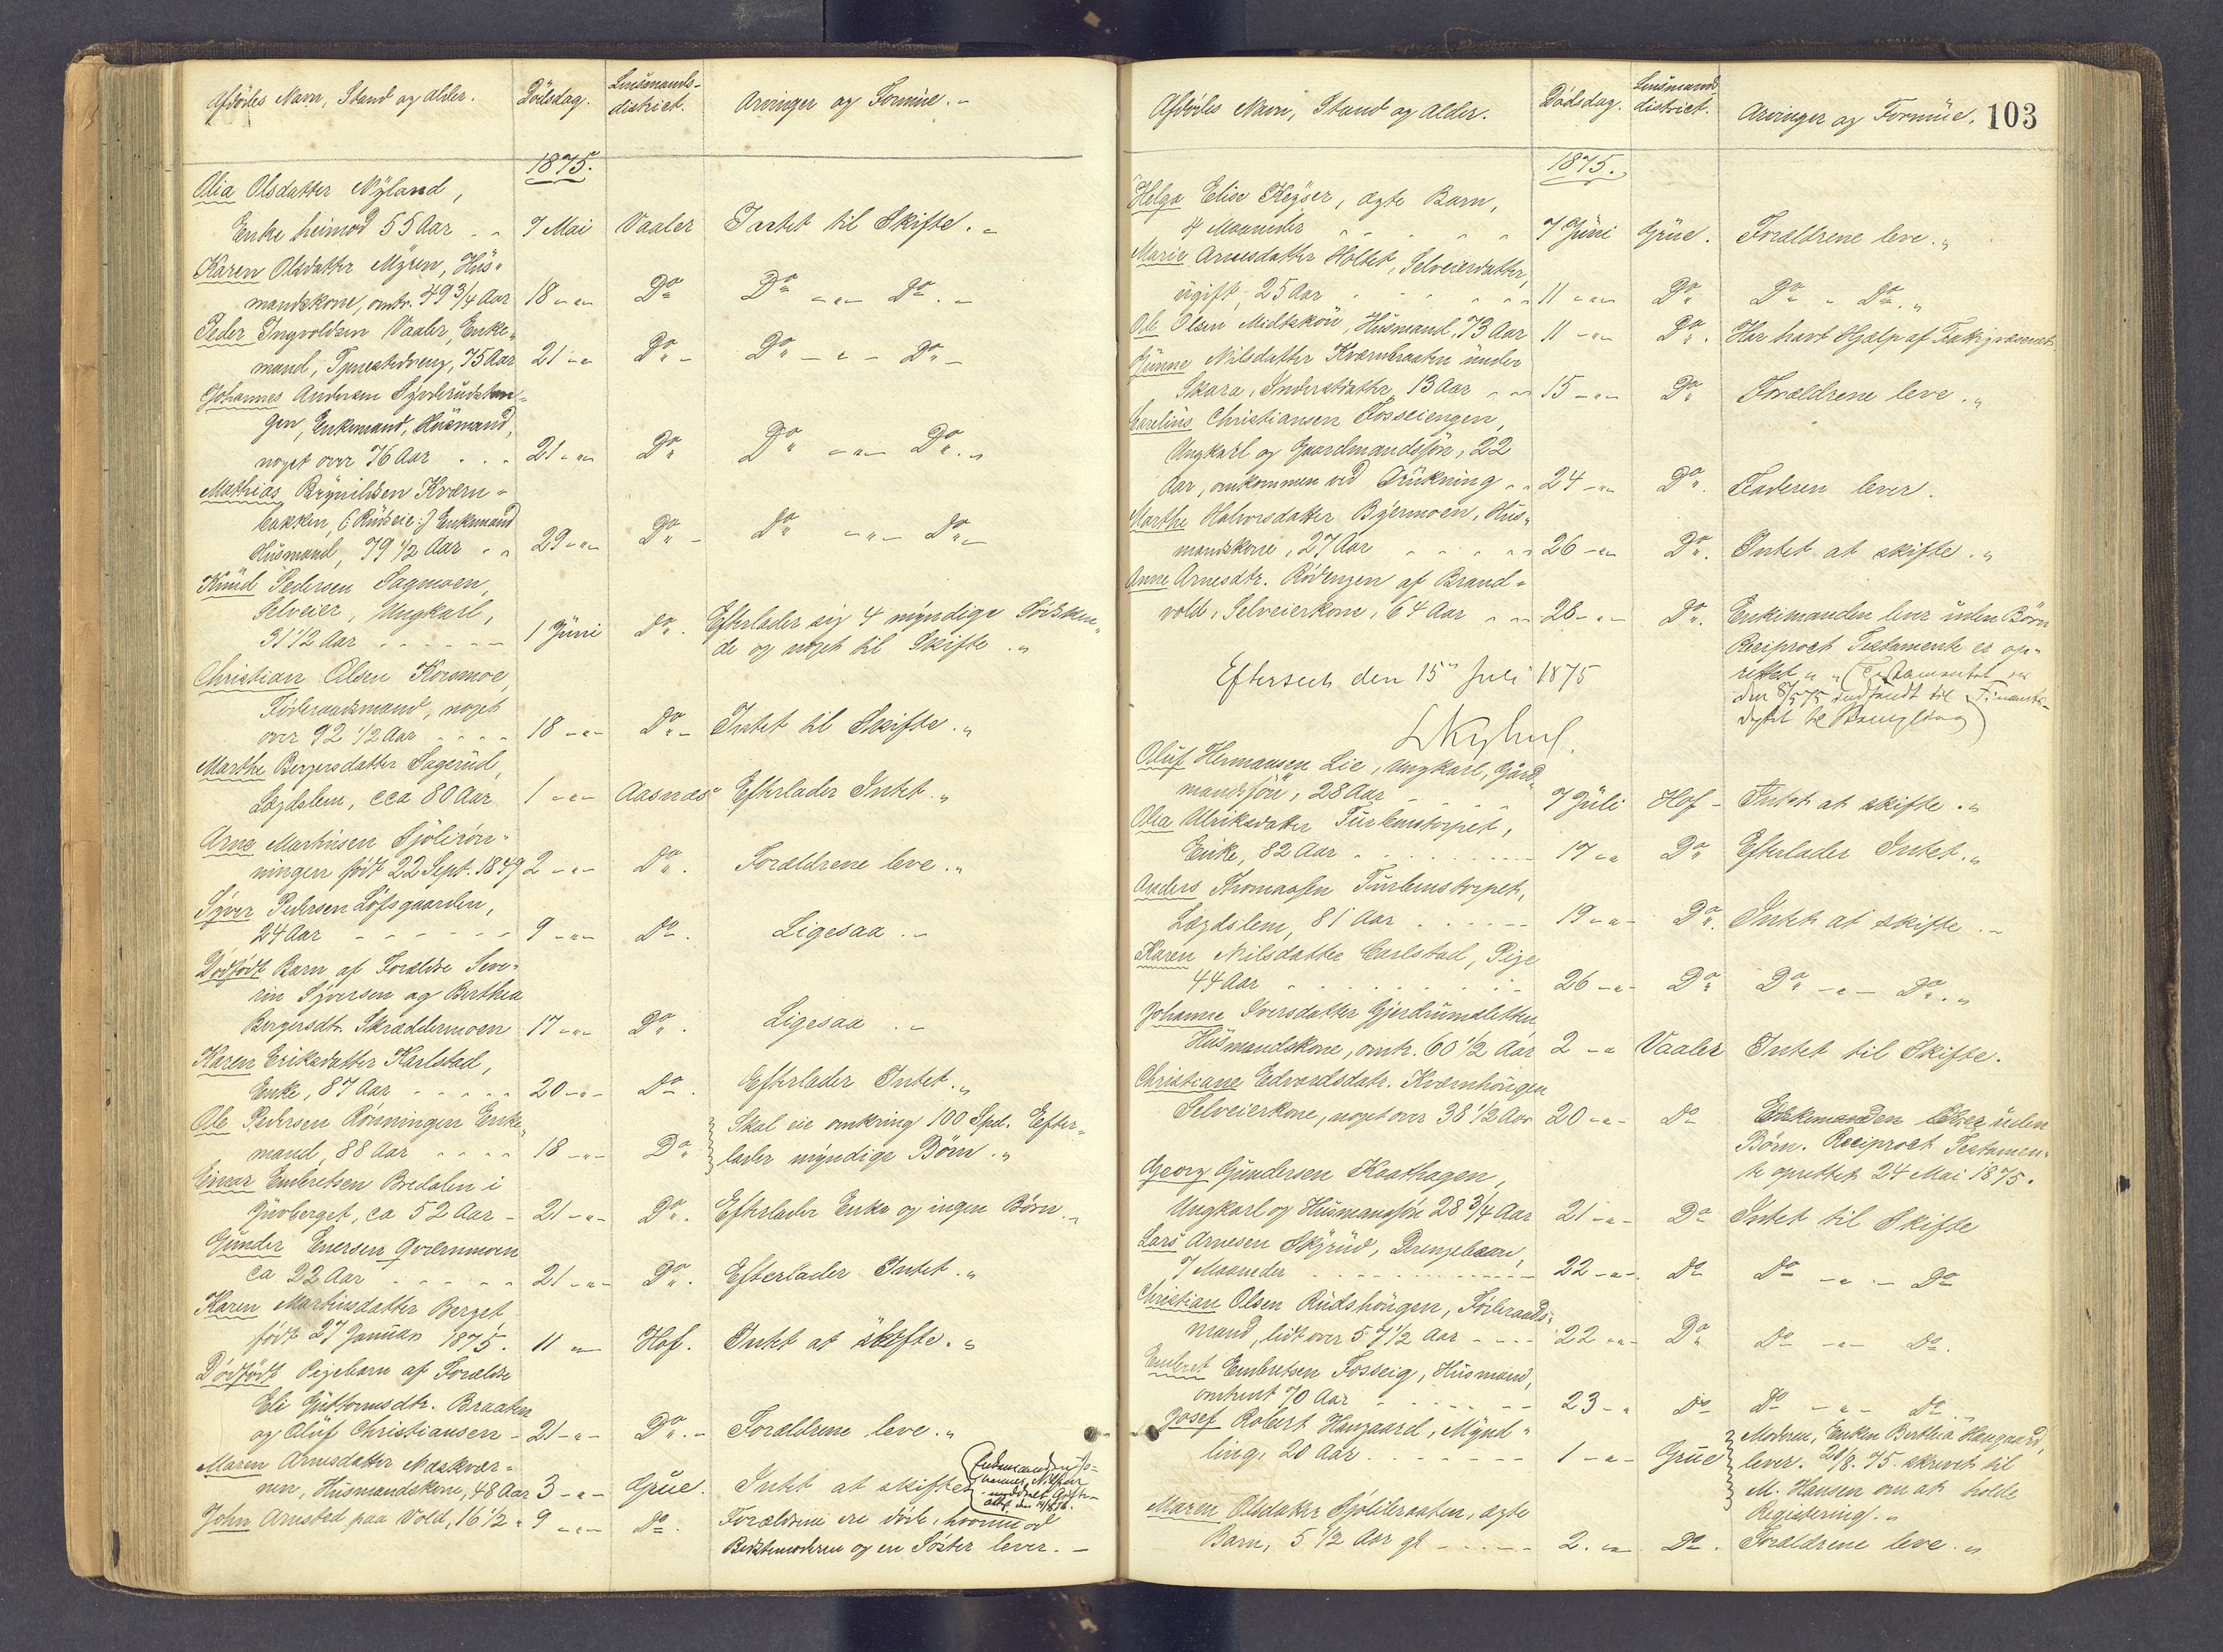 Afdødes Navn, Stand og alder. Dödsdag. Lensmands-
district. Arvinger og Formue.
1875.
Olia Olsdatter Nÿland,
Enke heimod 55 Aar 7 Mai Vaaler Intet til Skifte.
Karen Olsdatter Mÿren, Hüs-
mandskone, omtr. 49 3/4 Aar 18 -"- Do Do -"- Do.
Peder Ingvoldsen Vaaler, Enke-
mand, 75 Aar 21 -"- Do Do -"- Do
Johannes Andersen
gen, Enkemand, Hüsmand,
noget over 76 Aar 21 -"- Do Do -"- Do.
Mathias Brÿnildsen Kværn-
bakken, (: Rudseie :) Enkemand
Hüsmand, 79 1/2 Aar 29 -"- Do Do -"- Do
Knüd Pedersen Sagmoen,
Selveier, Ungkarl,
31 1/2 Aar 1 Jüni Do. Efterlader sig 4 mÿndige Södsken-
de og noget til Skifte.
Christian Olsen Korsmoe,
Föderaadsmand, noget
over 92 1/2 Aar 18 -"- Do Intet til Skifte.
Marthe Bergersdatter Sagerüd,
Lægdslem, cca 80 Aar 1 -"- Aasnæs Efterlader Intet.
Arne Martinsen Sjölirön-
ningen född 22 Sept. 1849 2 -"- Do. Forældrene leve.
Sÿver Pedersen Löfsgaarden,
24 Aar 9 -"- Do. Ligesaa.
Dödfödt Barn af Forældre Seve-
rin Sÿversen og Berthea
Bergersdtr. Skræddermoen 17 -"- Do. Ligesaa.
Karen Eriksdatter Karlstad,
Enke, 87 Aar 20 -"- Do. Efterlader Intet.
Ole Pedersen Rönningen Enke- Skal eie omkring 100 Spd. Efter-
mand, 88 Aar 18 -"- Do lader mÿndige Börn.
Einar Embretsen Bredalen i
Gjüvberget, ca 52 Aar 21 -"- Do. Efterlader Enke og ingen Börn.
Günder Enersen Qværnmoen
ca 22 Aar 21 -"- Do. Efterlader Intet.
Karen Martinsdatter Berget
född 27 Januar 1875. 11 -"- Hof. Intet at skifte.
Dödfödt Pigebarn af Forældre
Eli Güttormsdtr. Braaten
og Olüf Christiansen 21 -"- Do. Forældrene leve.
Maren Arnesdatter Næskvær-
nen, Hüsmandskone, 48 Aar 3 -"- Grüe. Intet at skifte.
John Arnsted paa Vold, 16 1/2 9 -"- Do Forældrene ere döde, hvorimod
Bedstemoderen og en Söster lever.
Afdödes Navn, Stand og Alder. Dödsdag. Lensmands
district. Arvinger og Formüe. 103
1875.
Helga Elise Keÿser, ægte Barn,
4 Maaneder 7 Jüni Grüe. Forældrene leve.
Marie Arnesdatter Holtet, Selveierdatter,
ügift, 25 Aar 11 -"- Do Do " Do.
Ole Olsen Midtskou, Hüsmand, 73 Aar 11 -"- Do. Har havt Hjælp af Fattigvæsenet.
Günne Nilsdatter Kværnbraaten ünder
Skara, Inderstdatter, 13 Aar 15 -"- Do Forældrene leve.
Karelius Christiansen Fosseiengen,
Ungkarl og Gaardmandssön, 22
Aar, omkommen ved Drükning 24 -"- Do. Faderen lever.
Marthe Halvorsdatter Bÿermoen, Hüs-
mandskone, 27 Aar 26 -"- Do. Intet at skifte.
Anne Arnesdtr. Rödengen af Brand-
vold, Selveierkone, 64 Aar 28 -"- Do. Enkemanden lever üden Börn
Reciproct Testamente er op-
rettet. (Testamentet er
den 8/7 75 indsendt til Finants-
Efterseet den 15de Juli 1875
Olüf Hermansen Lie, Ungkarl, Gård-
mandssön, 28 Aar 7 Jüli Hof Intet at skifte.
Olia Ulriksdatter Turbenstorpet,
Enke, 82 Aar 17 -"- Do Efterlader Intet.
Anders Thomassen Turbenstorpet,
Lægdslem, 81 Aar 19 -"- Do. Intet at skifte.
Karen Nilsdatter Carlstad, Pige
44 Aar 26 -"- Do Do -"- Do.
Johanne Iversdatter Gjerdrumsletten
Hüsmandskone, omtr. 60 1/2 Aar 2 -"- Vaaler Intet til Skifte.
Christiane Edvardsdatr. Kværnhaugen
Selveierkone, noget over 38 1/2 Aar 20 -"- Do Enkemanden lever üden
Börn. Reciproct Testamen-
te oprettet 24 Mai 1875.
Georg Gündersen Kvathagen,
Ungkarl og Hüsmandssön 28 3/4 Aar 21 -"- Do Intet til Skifte
Lars Arnesen Skÿrüd, Drengebarn,
7 Maaneder 22 -"- Do Do -"- Do
Christian Olsen Rüdshaugen, Föderaads-
mand, lidt over 57 1/2 Aar 22 -"- Do Do -"- Do.
Embret Embretsen Fosseig, Hüsmand,
omtrent 70 Aar 23 -" Do Do -"- Do
Josef Robert Haugaard, Mÿnd- Moderen, Enken Berthea Haugaard,
ling, 20 Aar 1 -"- Grüe lever. 20/8. 75. skrevet til
M. Hansen om at holde
Registering.
Maren Olsdatter Sjölibraaten, ægte
Barn, 5 1/2 Aar gl 2. -"- Do. Forældrene leve.